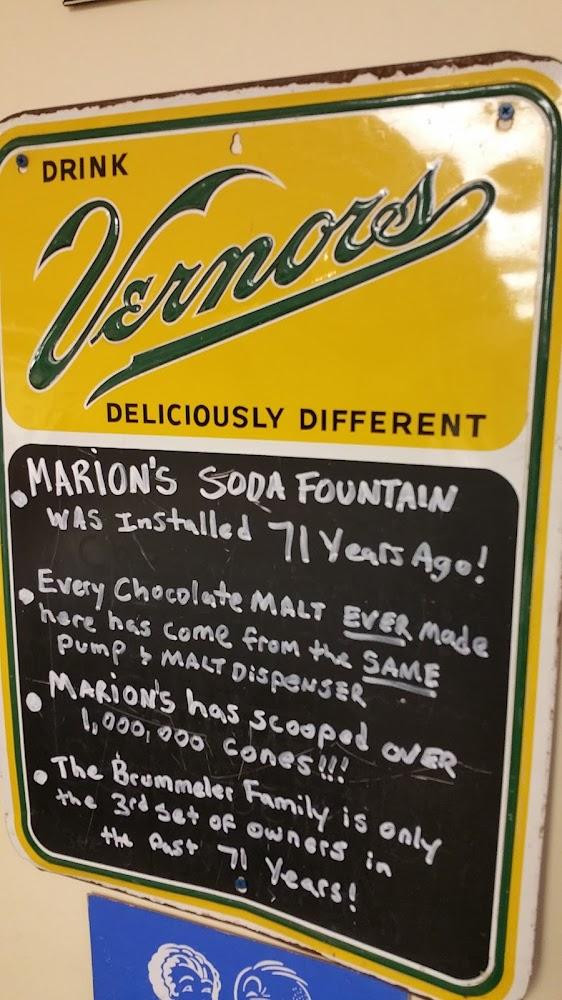 DRINK
Vernors
DELICIOUSLY DIFFERENT
• MARION'S SODA FOUNTAIN
WAS Installed 71 Years Ago!
• Every Chocolate MALT EVER made
here has come from the SAME
Pump & MALT DISPENSER
• MARION'S has scooped OVER
1,000,000 cones!!!
• The Brummeler Family is only
the 3rd set of owners in
the past 71 Years!